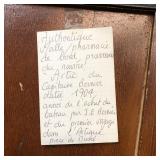 Authentique
Malle pharmacie
de bord provenant
du navire
Arctic du
Capitaine Bernier
datée 1904
année de l'achat du
bateau par J.E. Bernier
et du premier voyage
dans l'Arctique